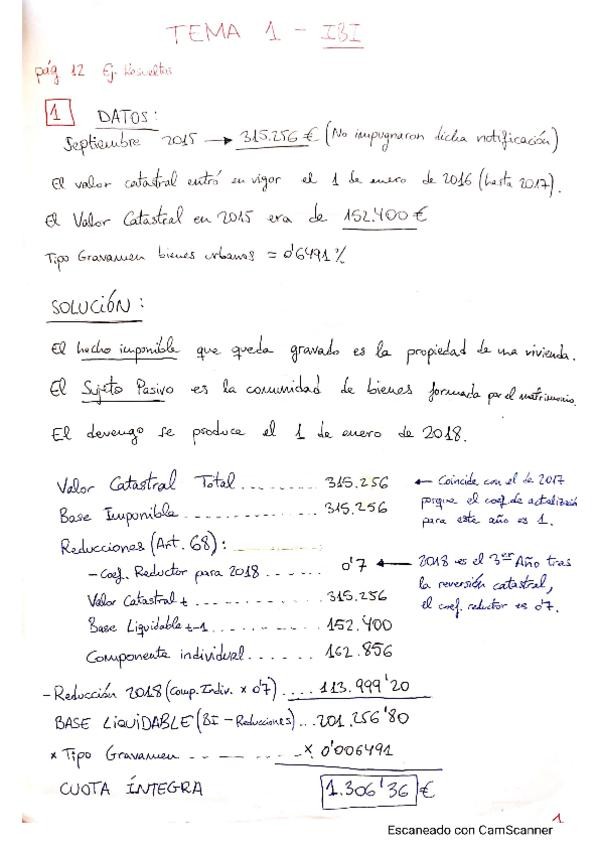 TEMA 1 - IBI
pág 12 Ej. Resueltos
1 DATOS:
Septiembre 2015 → 315.256 € (No impugnaron dicha notificación)
El valor catastral entró en vigor el 1 de enero de 2016 (hasta 2017).
El Valor Catastral en 2015 era de 152.400 €
Tipo Gravamen bienes urbanos = 0'6491 %
SOLUCIÓN:
El hecho imponible que queda gravado es la propiedad de una vivienda.
El Sujeto Pasivo es la comunidad de bienes formada por el matrimonio.
El devengo se produce el 1 de enero de 2018.
Valor Catastral Total......... 315.256 ← Coincide con el de 2017
porque el coef. de actualización
para este año es 1.
Base Imponible............... 315.256
Reducciones (Art. 68):
- Coef. Reductor para 2018...... 0'7 ← 2018 es el 3er Año tras
la reversión catastral,
el coef. reductor es 0'7.
Valor Catastral t............ 315.256
Base Liquidable t-1.......... 152.400
Componente individual...... 162.856
- Reducción 2018 (Comp. Indiv. x 0'7).... 113.999'20
BASE LIQUIDABLE (BI - Reducciones)... 201.256'80
x Tipo Gravamen............ x 0'006491
CUOTA ÍNTEGRA 1.306'36 €
1
Escaneado con CamScanner